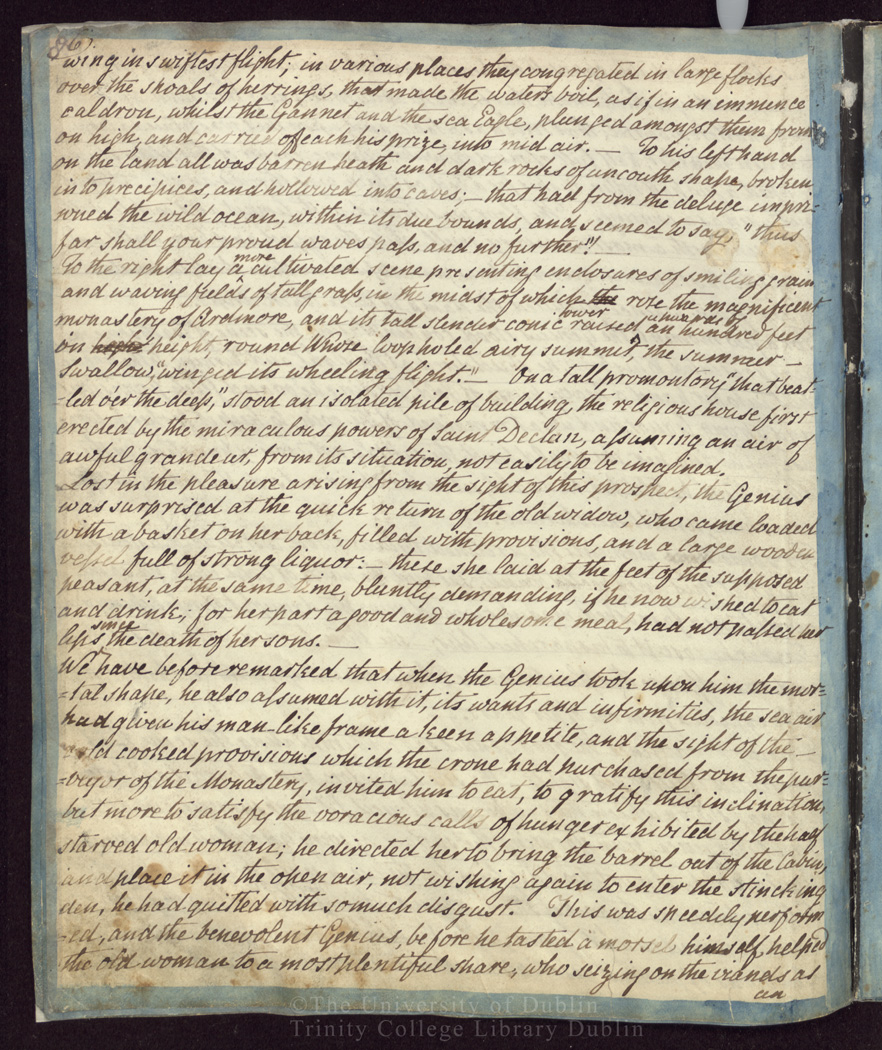 86.
wing in swiftest flight; in various places they congregated in large flocks
over the shoals of herrings, that made the waters boil, as if in an immence
caldron, whilst the Gannet and the sea Eagle, plunged amongst them from
on high, and carried off each his prize, into mid air. — To his left hand
on the land all was barren heath and dark rocks of uncouth shape, broken
into precipices, and hollowed into caves; — that had from the deluge impri-
soned the wild ocean, within its due bounds, and seemed to say, "thus
far shall your proud waves pass, and no further"! —
To the right lay a more cultivated scene presenting enclosures of smiling grain
and waving fields of tall grass, in the midst of which the rose the magnificent
monastery of Ardmore, and its tall slender conic tower raised upwards of an hundred feet
in height, round whose loopholed airy summit, the summer —
swallow, "winged its wheeling flight." — On a tall promontory, "that beat-
-led o'er the deep," stood an isolated pile of building, the religious house first
erected by the miraculous powers of Saint Declan, assuming an air of
awful grandeur, from its situation, not easily to be imagined.
Lost in the pleasure arising from the sight of this prospect, the Genius
was surprised at the quick return of the old widow, who came loaded
with a basket on her back, filled with provisions, and a large wooden
vessel full of strong liquor: — these she laid at the feet of the supposed
peasant, at the same time, bluntly demanding, if he now wished to eat
and drink; for her part a good and wholesome meal, had not passed her
lips since the death of her sons. —
We have before remarked that when the Genius took upon him the mor=
=tal shape, he also assumed with it, its wants and infirmities, the sea air
had given his man-like frame a keen appetite, and the sight of the —
cold cooked provisions which the crone had purchased from the pur=
=veyor of the Monastery, invited him to eat, to gratify this inclination,
but more to satisfy the voracious calls of hunger exhibited by the half
starved old woman; he directed her to bring the barrel out of the Cabin,
and place it in the open air, not wishing again to enter the stincking
den, he had quitted with so much disgust. This was speedily perform
-ed, and the benevolent Genius, before he tasted a morsel himself, helped
the old woman to a most plentiful share, who seizing on the viands as
an
©The University of Dublin
Trinity College Library Dublin